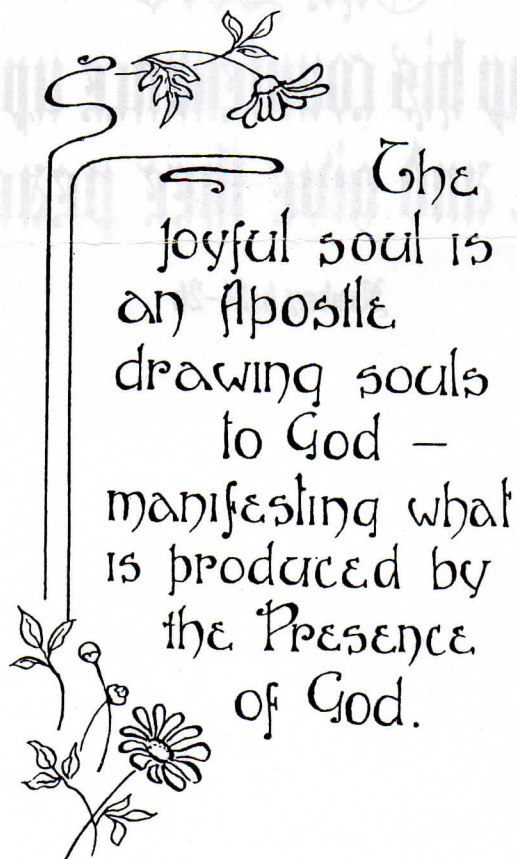 The
joyful soul is
an Apostle
drawing souls
to God –
manifesting what
is produced by
the Presence
of God.